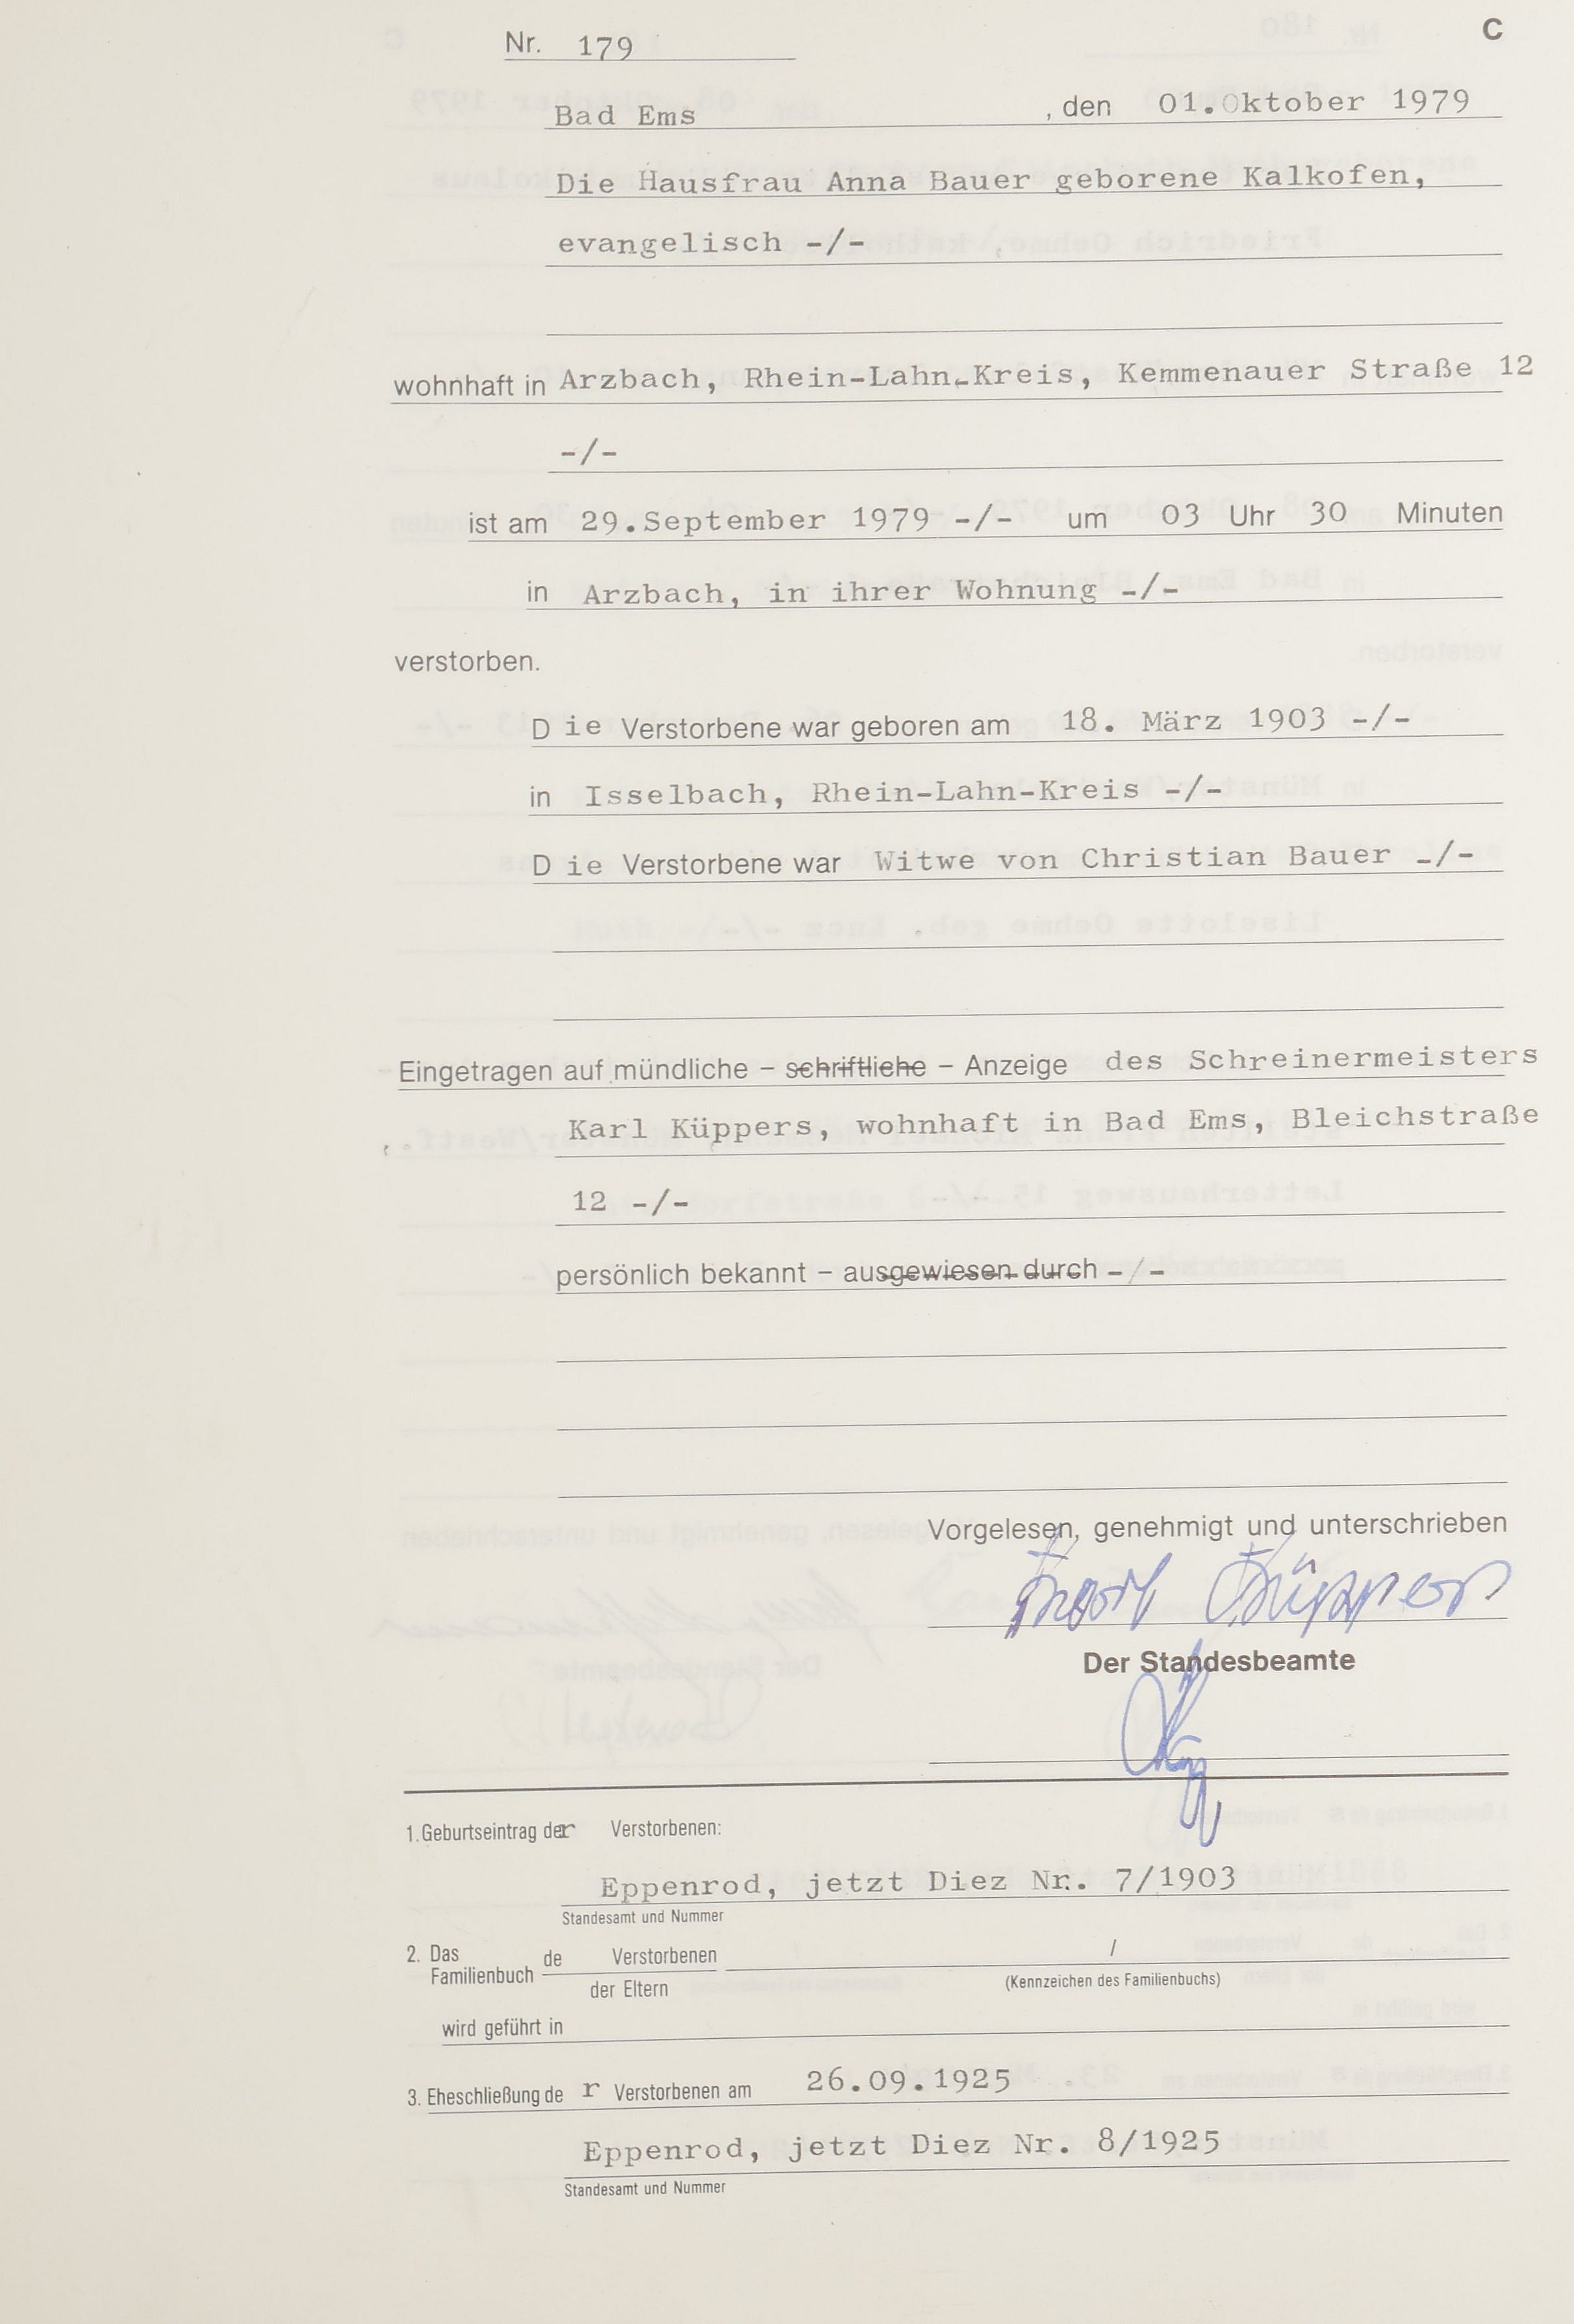 Nr. 179
C
Bad Ems , den 01.Oktober 1979
Die Hausfrau Anna Bauer geborene Kalkofen,
evangelisch -/-
wohnhaft in Arzbach, Rhein-Lahn-Kreis, Kemmenauer Straße 12
-/-
ist am 29.September 1979 -/- um 03 Uhr 30 Minuten
in Arzbach, in ihrer Wohnung -/-
verstorben.
Die Verstorbene war geboren am 18. März 1903 -/-
in Isselbach, Rhein-Lahn-Kreis -/-
Die Verstorbene war Witwe von Christian Bauer -/-
Eingetragen auf mündliche - schriftliche - Anzeige des Schreinermeisters
Karl Küppers, wohnhaft in Bad Ems, Bleichstraße
12 -/-
persönlich bekannt - ausgewiesen durch -/-
Vorgelesen, genehmigt und unterschrieben
Karl Küppers
Der Standesbeamte
1. Geburtseintrag der Verstorbenen:
Eppenrod, jetzt Diez Nr. 7/1903
Standesamt und Nummer
2. Das Familienbuch de Verstorbenen /
der Eltern (Kennzeichen des Familienbuchs)
wird geführt in
3. Eheschließung der Verstorbenen am 26.09.1925
Eppenrod, jetzt Diez Nr. 8/1925
Standesamt und Nummer